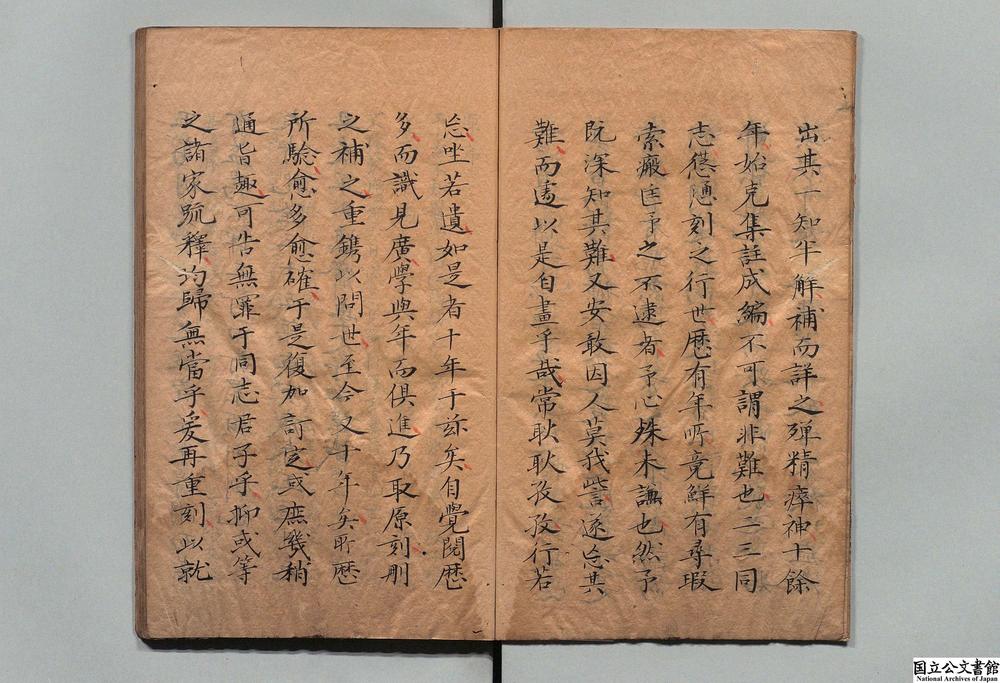 出其一知半解補而詳之殫精瘁神十餘
年始克集註成編不可謂非難也二三同
志慫慂刻之行世歷有年所竟鮮有尋瑕
索瘢匡予之不逮者予心殊未謙也然予
既深知其難又安敢因人莫我訾遂忘其
難而遽以是自畫乎哉常耿耿孜孜行若
忘坐若遺如是者十年于茲矣自覺閱歷
多而識見廣學與年而俱進乃取原刻刪
之補之重鐫以問世至今又十年矣所歷
所驗愈多愈確于是復加訂定或庶幾稍
通旨趣可告無罪于同志君子乎抑或等
之諸家疏釋均歸無當乎爰再重刻以就
国立公文書館
National Archives of Japan